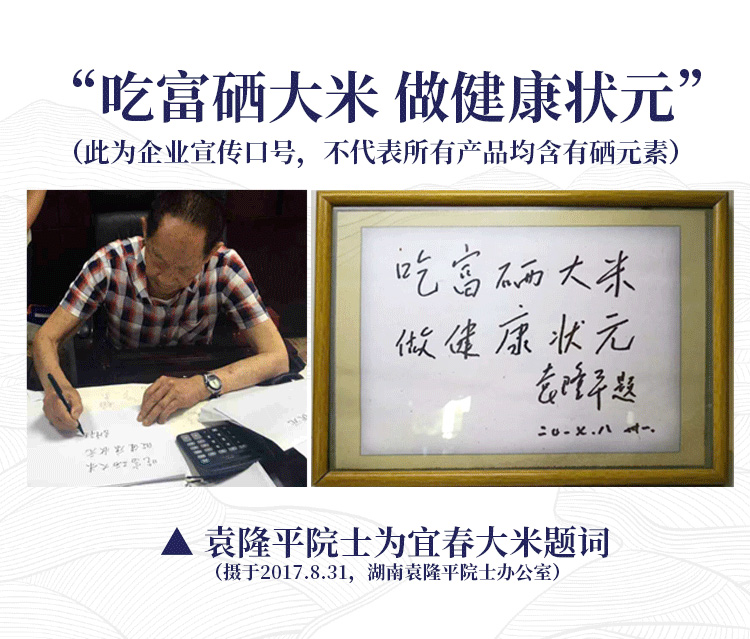 “吃富硒大米 做健康状元”
（此为企业宣传口号，不代表所有产品均含有硒元素）
吃富硒大米
做健康状元
吃富硒大米
做健康状元
袁隆平题
二〇一七.八.卅一.
▲ 袁隆平院士为宜春大米题词
（摄于2017.8.31，湖南袁隆平院士办公室）